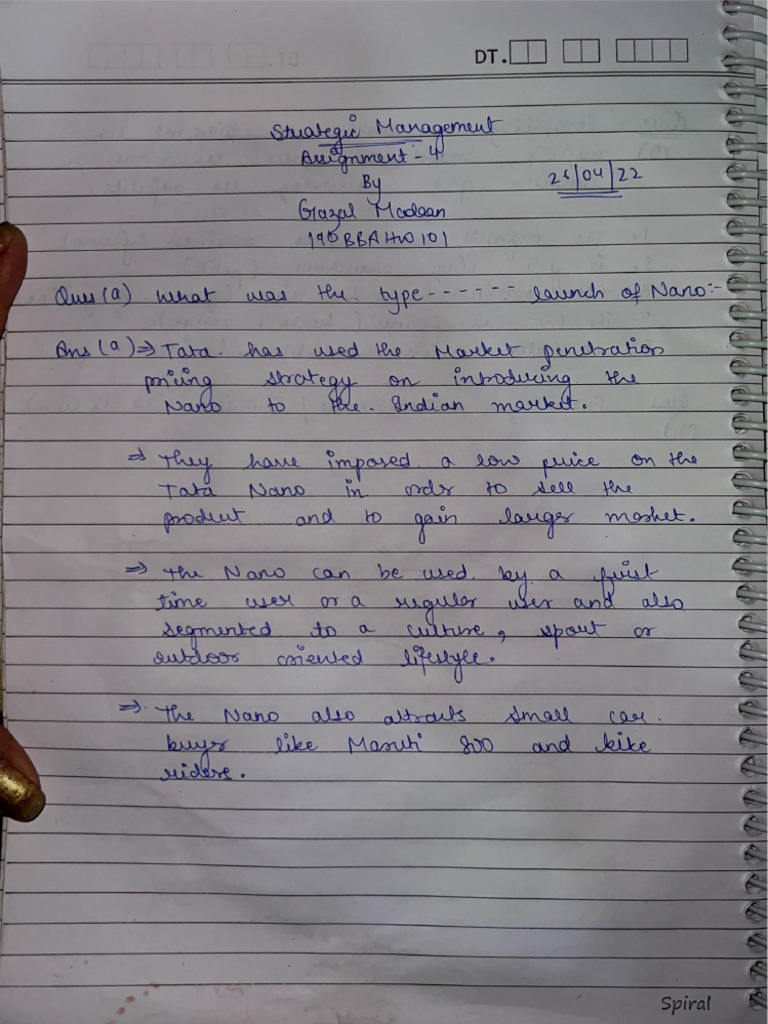 DT.
Strategic Management
Assignment - 4
By
Gazal Madaan
190BBAHW101
/04/22
Ques (a) What was the type ------ launch of Nano:-
Ans (a) ⇒ Tata has used the Market penetration
pricing strategy on introducing the
Nano to the Indian market.
⇒ They have imposed a low price on the
Tata Nano in order to sell the
product and to gain larger market.
⇒ The Nano can be used by a first
time user or a regular user and also
segmented to a culture, sport or
outdoor oriented lifestyle.
⇒ The Nano also attracts small car
buyer like Maruti 800 and bike
riders.
Spiral